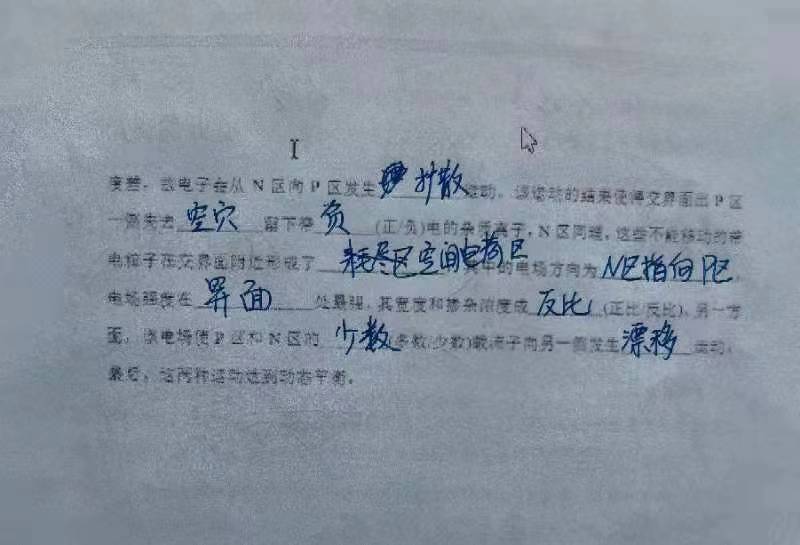 度差,故电子会从 N 区向 P 区发生 扩散 运动,该运动的结果使得交界面出 P 区
一侧失去 空穴 留下带 负 (正/负)电的杂质离子,N 区同理,这些不能移动的带
电粒子在交界面附近形成了 耗尽区空间电荷区 其中的电场方向为 N区指向P区
电场强度在 界面 处最强,其宽度和掺杂浓度成 反比 (正比/反比),另一方
面,该电场使 P 区和 N 区的 少数 (多数/少数)载流子向另一侧发生 漂移 运动,
最后,这两种运动达到动态平衡。